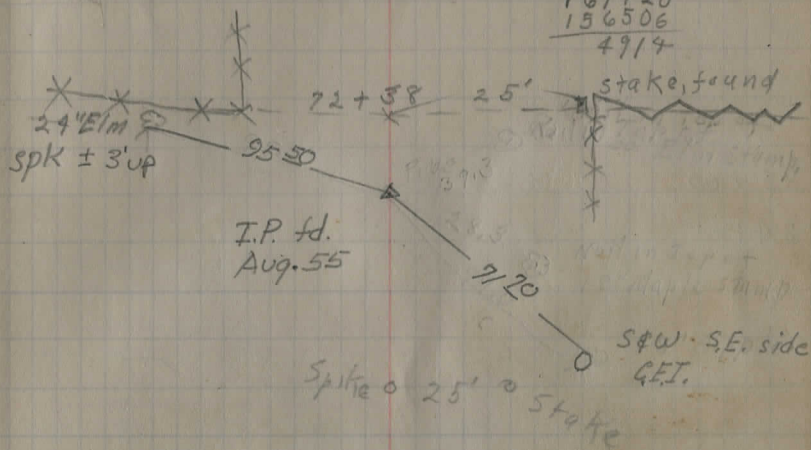 156506
4914
stake, found
72 + 38 25'
24" Elm
spk ± 3' up
9550
I.P. fd.
Aug. 55
7120
S&W. S.E. side
Spike 25' Stake